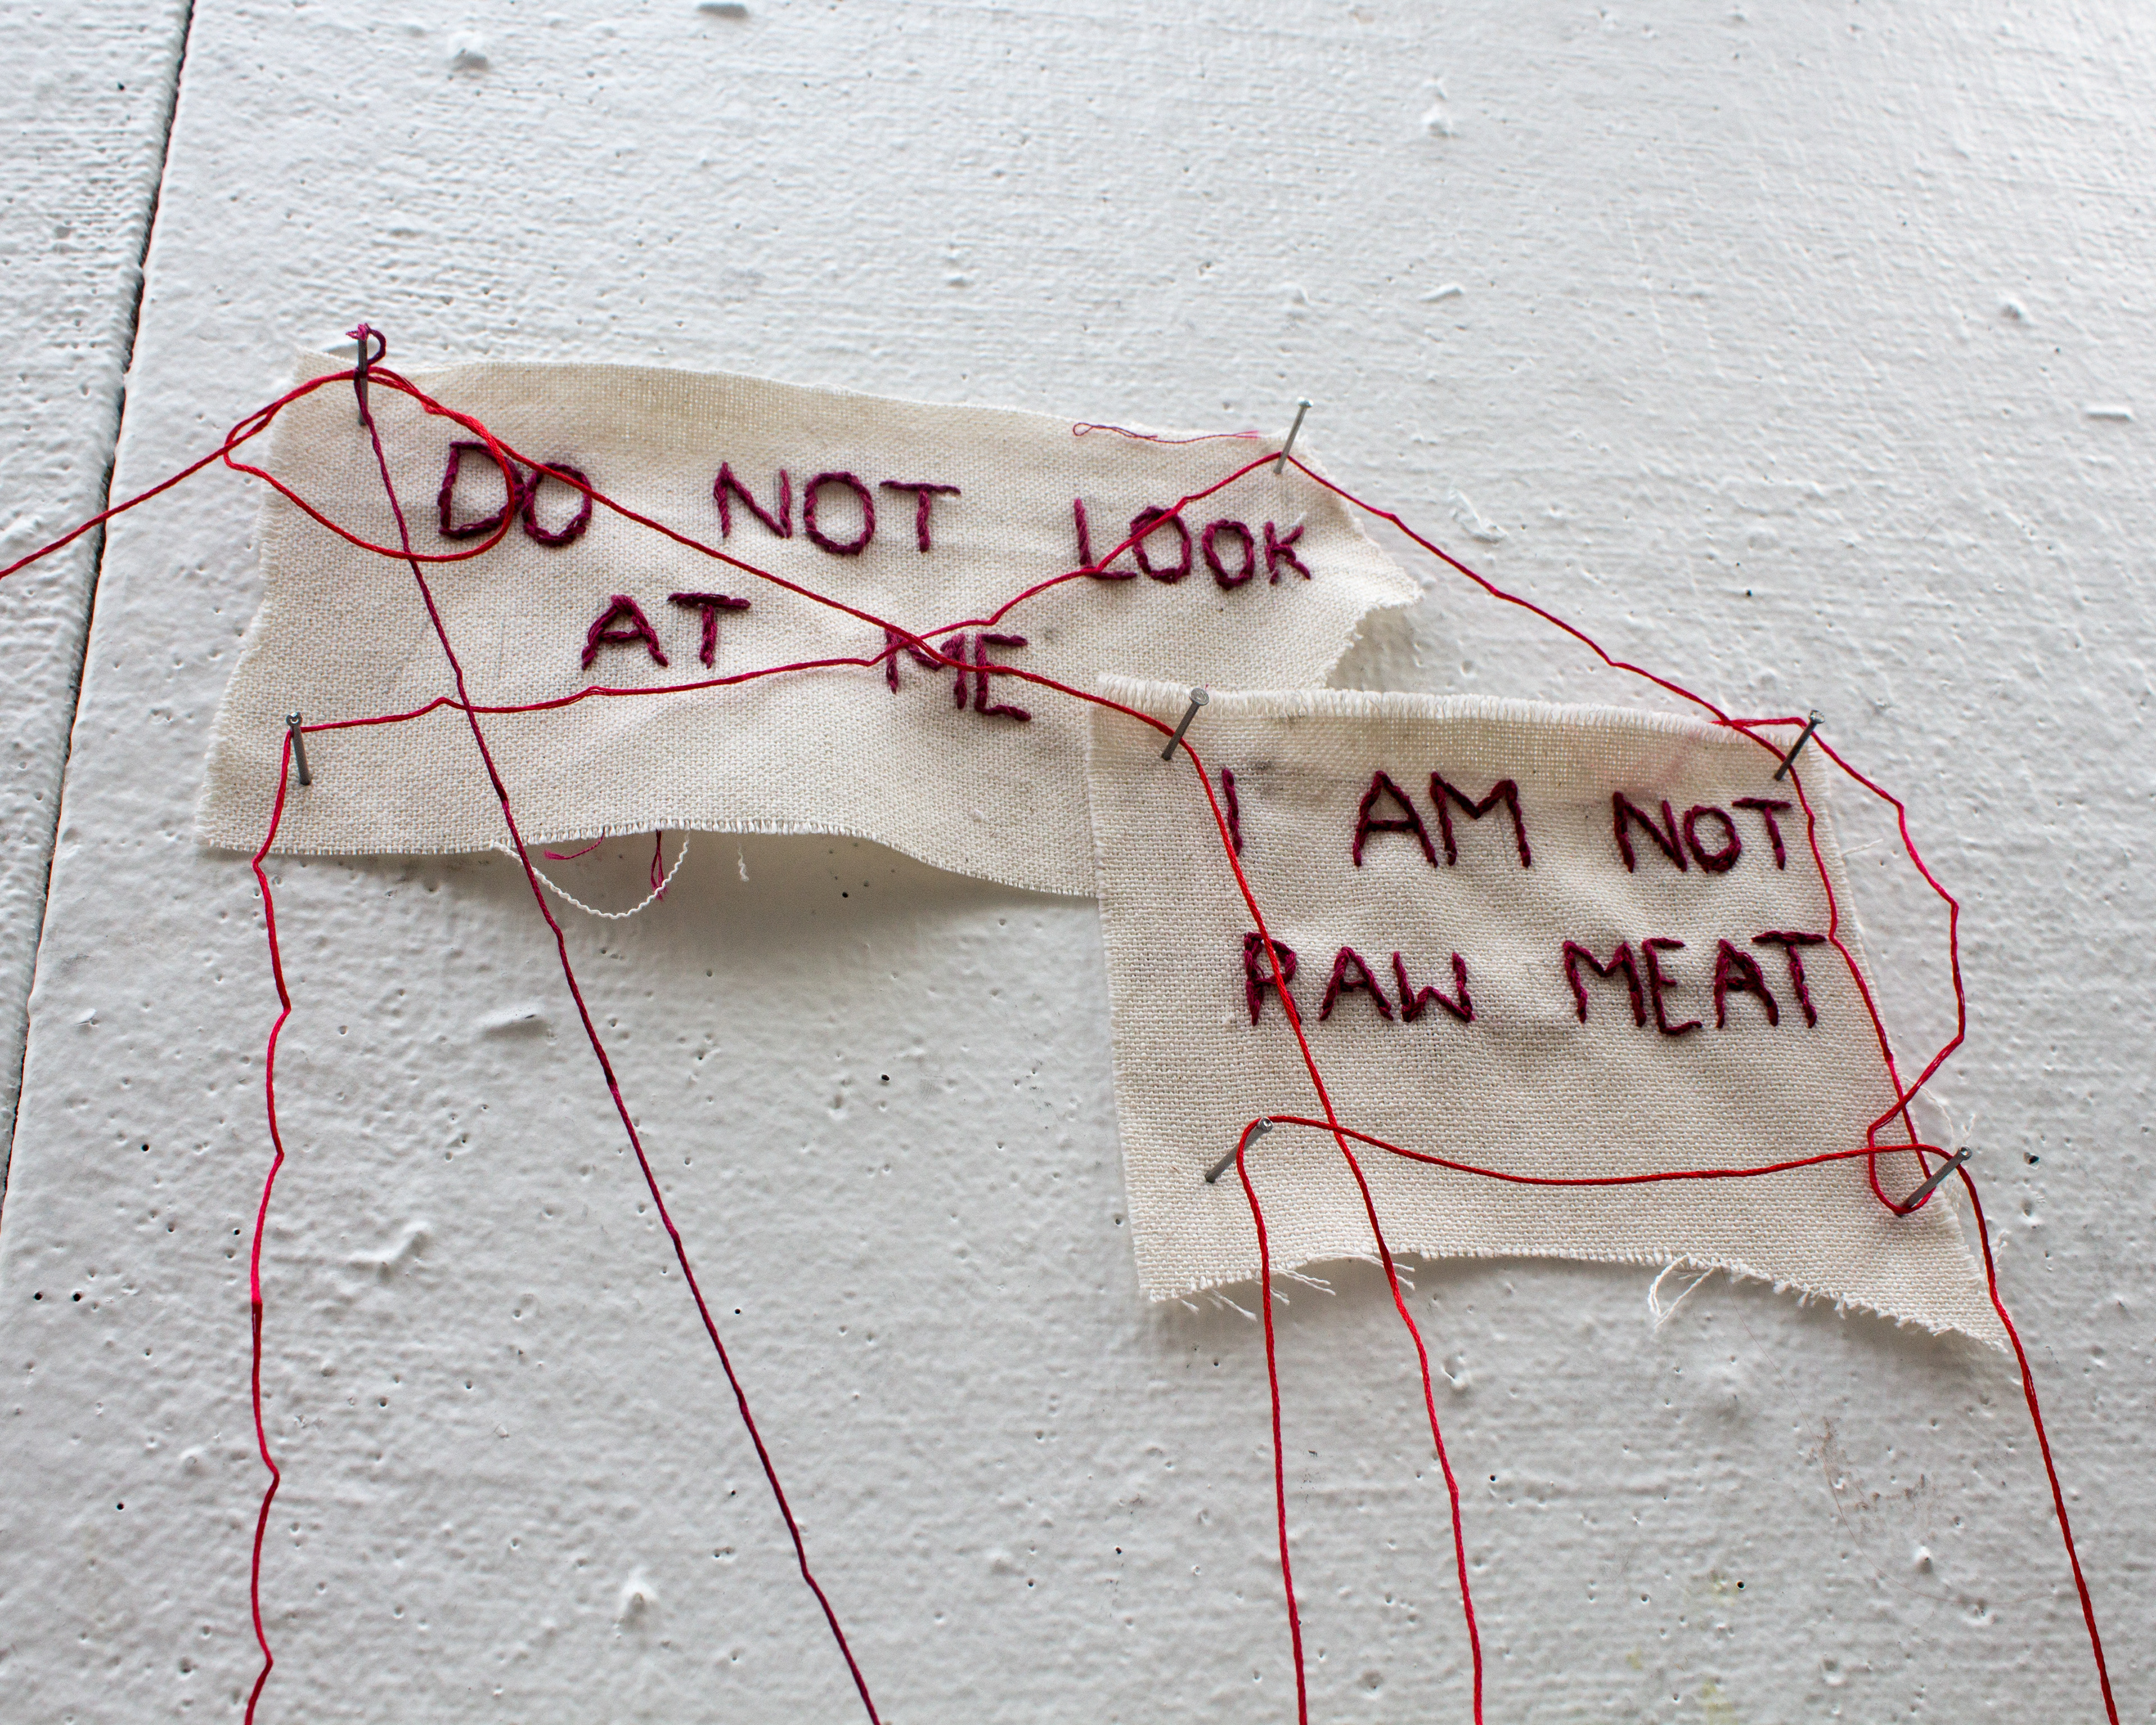 DO NOT LOOK
AT ME
I AM NOT
RAW MEAT